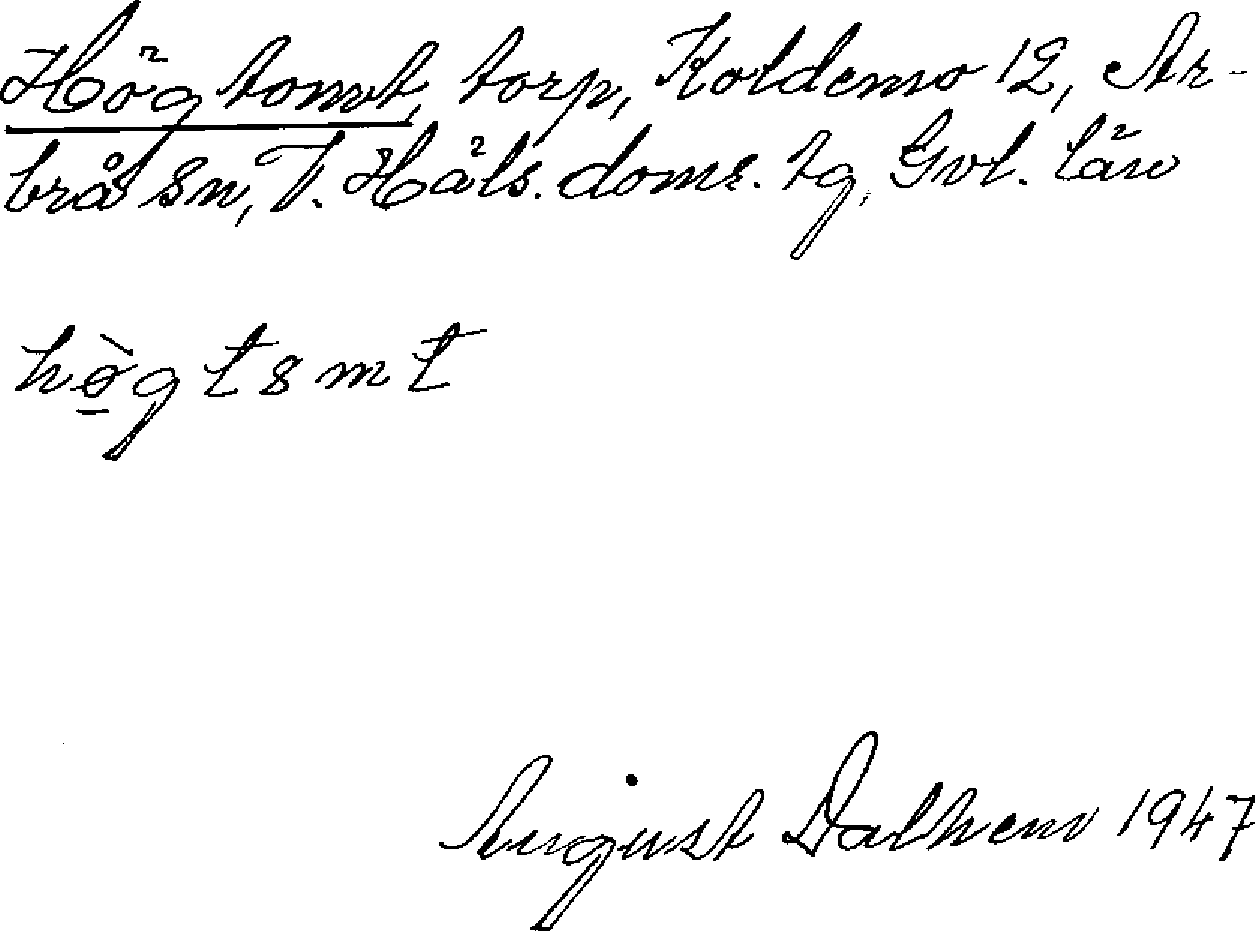 Högtomt, torp, Koldemo 12, Ar-
brå sn, V. Häls. doms. tg, Gvl. län
hø̀gtsmt
August Dalhem 1947